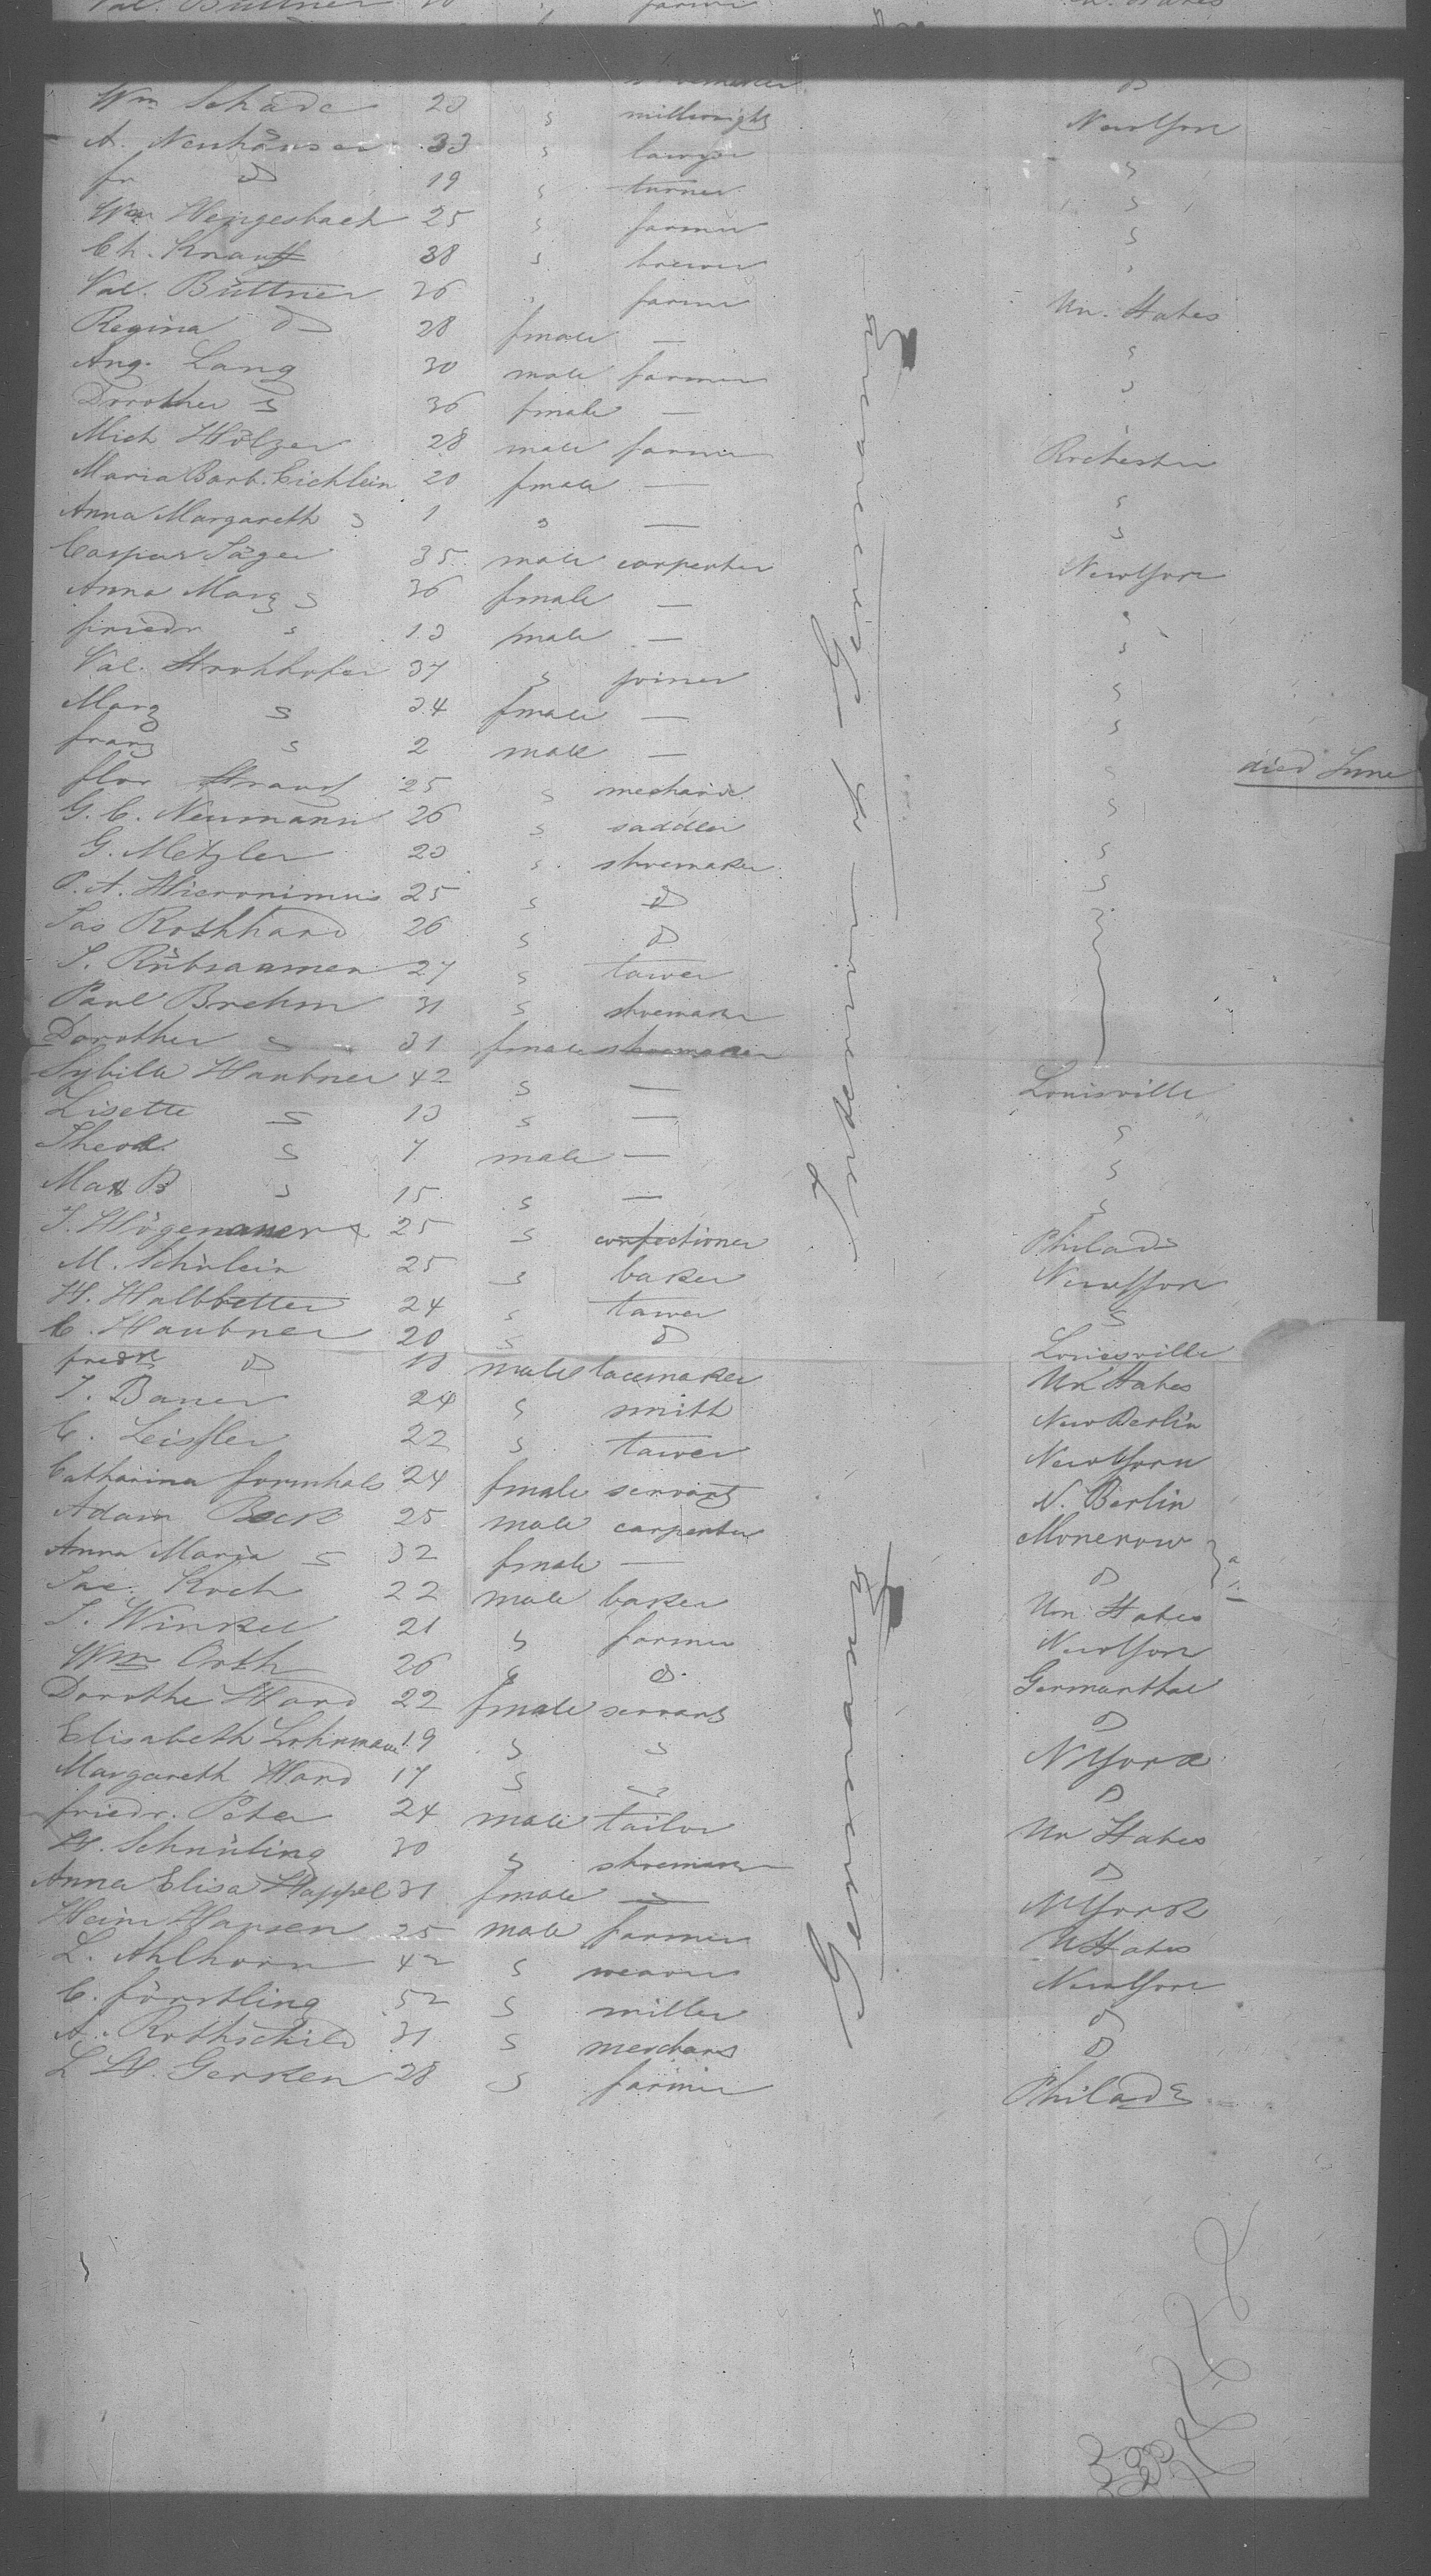 Val. Büttner farmer Un. States
Wm Schade 23 " millwright New York
A. Neuhäuser 33 " lawyer "
fr do 19 " turner "
Wm Hengesbach 25 " farmer "
Ch. Knauff 38 " brewer "
Val. Büttner 36 " farmer Un. States
Regina do 28 female — "
Aug. Lang 30 male farmer "
Dorother " 36 female — "
Mich Hölzer 28 male farmer Rochester
Maria Barb. Eichlein 20 female — "
Anna Margareth " 1 " — "
Caspar Jäger 35 male carpenter New York
Anna Marg " 36 female — "
friedr " 13 male — "
Val. Strohhofer 37 " joiner "
Marg " 24 female — "
franz " 2 male — " died June
flor Straub 25 " mechanic "
G. C. Neumann 26 " saddler "
G. Metzler 23 " shoemaker "
P. A. Hieronimus 25 " do
Jas Rothhard 26 " do
J. Rübsaamen 27 " tawer
Paul Brehm 31 " shoemaker
Dorother " 31 female shoemaker
Sybille Haubner 42 " — Louisville
Lisette " 13 " — "
Theod. " 7 male — "
Max B " 15 " — "
J. Högenauer 25 " confectioner Philada
M. Schülein 25 " baker New York
H. Halbbetter 24 " tawer "
C. Haubner 20 " do Louisville
fredk do 18 male lacemaker Un States
J. Bauer 24 " smith New Berlin
C. Leissler 22 " tawer New York
Catharina formhals 24 female servant N. Berlin
Adam Beck 25 male carpenter
Anna Maria " 32 female — do
Jac. Koch 22 male baker Un. States
J. Winkel 21 " farmer New York
Wm Orth 26 " do Germanthal
Dorothe Hard 22 female servant do
Elisabeth Lohrmann 19 " " N York
Margareth Hard 17 " " do
friedr. Peter 24 male tailor Un States
H. Schnüling 30 " shoemaker do
Anna Elisa Happel 31 female — N York
Hein Hansen 25 male farmer U States
L. Ahlhorn 42 " weaver New York
C. förstling 52 " miller do
A. Rothschild 31 " merchant do
L H. Gerken 28 " farmer Philada
Germany